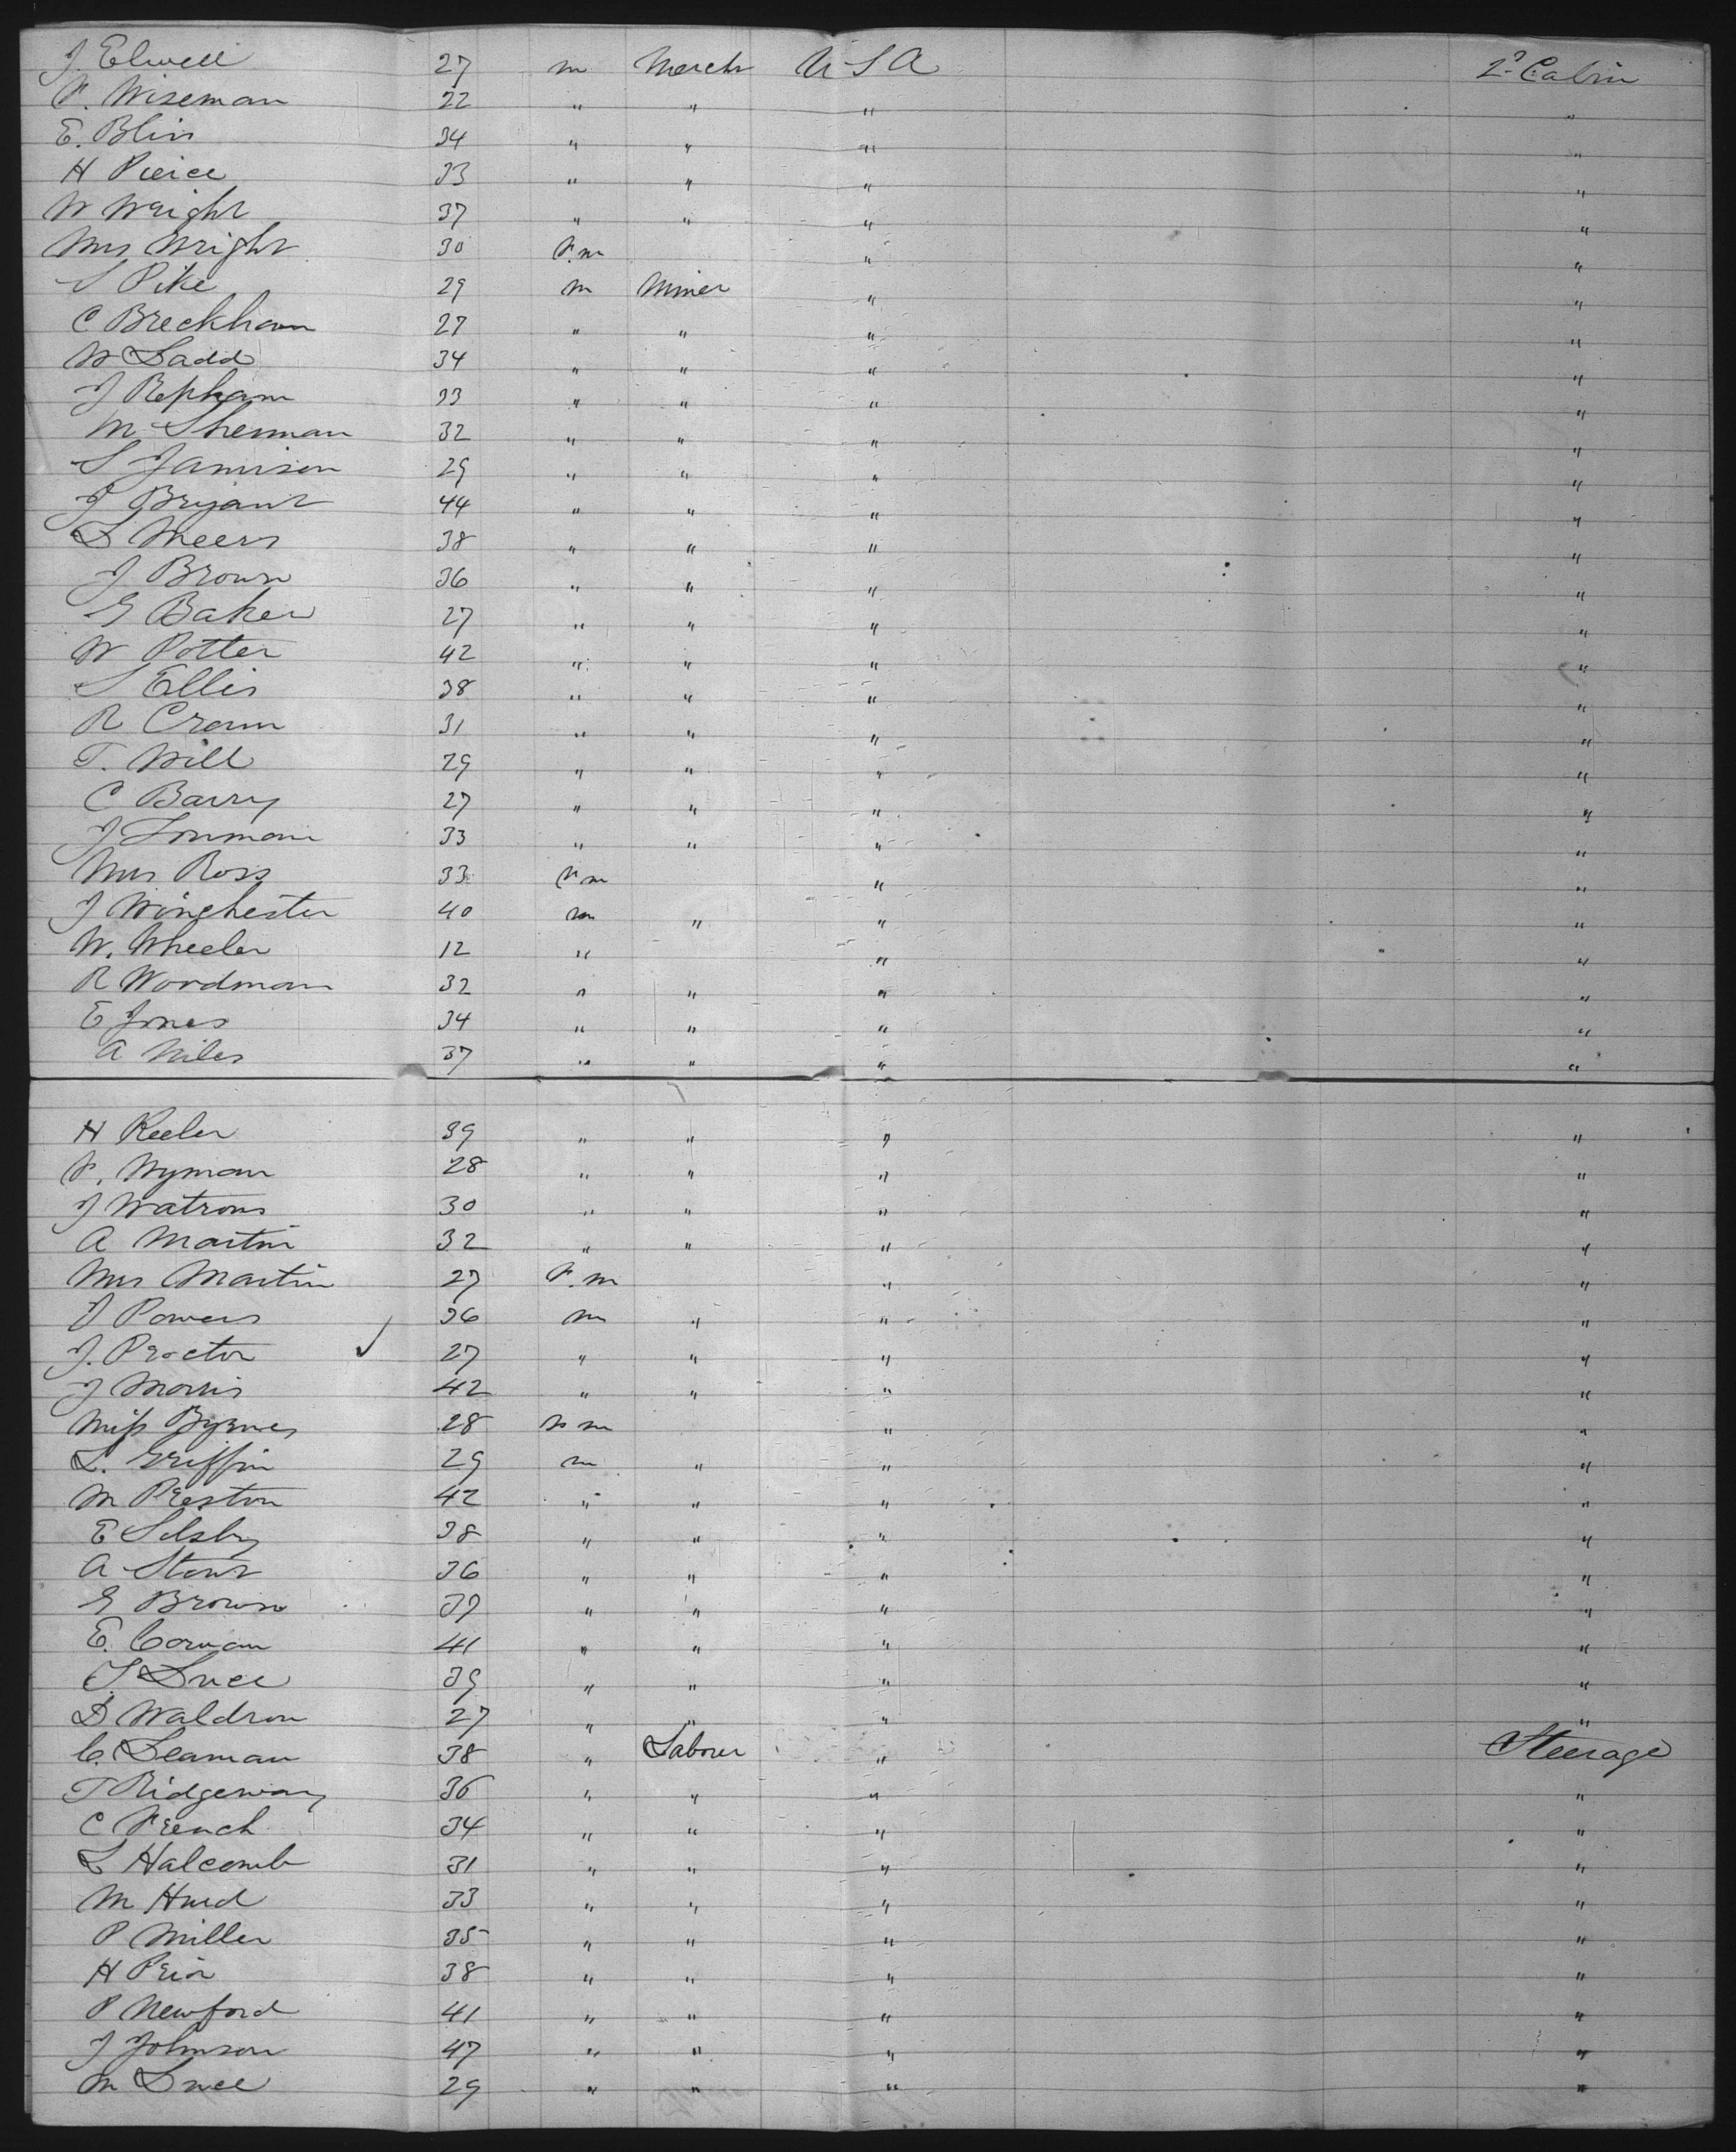 J. Elwell 27 m Merch U S A 2d Cabin
F. Wiseman 22 " " " "
E. Blin 34 " " " "
H Pierce 33 " " " "
W Wright 37 " " " "
Mrs Wright 30 F.m " "
S Pike 29 m Miner " "
C Breckham 27 " " " "
W Ladd 34 " " " "
J Repham 33 " " " "
M Sherman 32 " " " "
S Jamison 29 " " " "
J Bryant 44 " " " "
L Meers 38 " " " "
J Brown 36 " " " "
G Baker 27 " " " "
W Potter 42 " " " "
S Ellis 38 " " " "
R Cram 31 " " " "
T. Will 29 " " " "
C Barry 27 " " " "
J Lonman 33 " " " "
Mrs Ross 33 F m " "
J Winchester 40 m " " "
W. Wheeler 12 " " "
R Woodman 32 " " " "
E Jones 34 " " " "
A Niles 37 " " " "
H Keeler 39 " " " "
F. Wyman 28 " " " "
J Watrous 30 " " " "
A Martin 32 " " " "
Mrs Martin 27 F.m " "
J Powers 36 m " " "
J. Proctor ✓ 27 " " " "
J Morris 42 " " " "
Miss Byrnes 28 F m " "
L. Griffin 29 m " " "
M Preston 42 " " " "
E Silsby 38 " " " "
A Stout 36 " " " "
G Brown 39 " " " "
E. Corwan 41 " " " "
S. Luce 39 " " " "
D Waldron 27 " " " "
C. Leaman 38 " Laborer " Steerage
T Ridgeway 36 " " " "
C French 34 " " " "
L Halcomb 31 " " " "
M Hurd 33 " " " "
P Miller 35 " " " "
H Prior 38 " " " "
P Newford 41 " " " "
J Johnson 47 " " " "
M Luce 29 " " " "